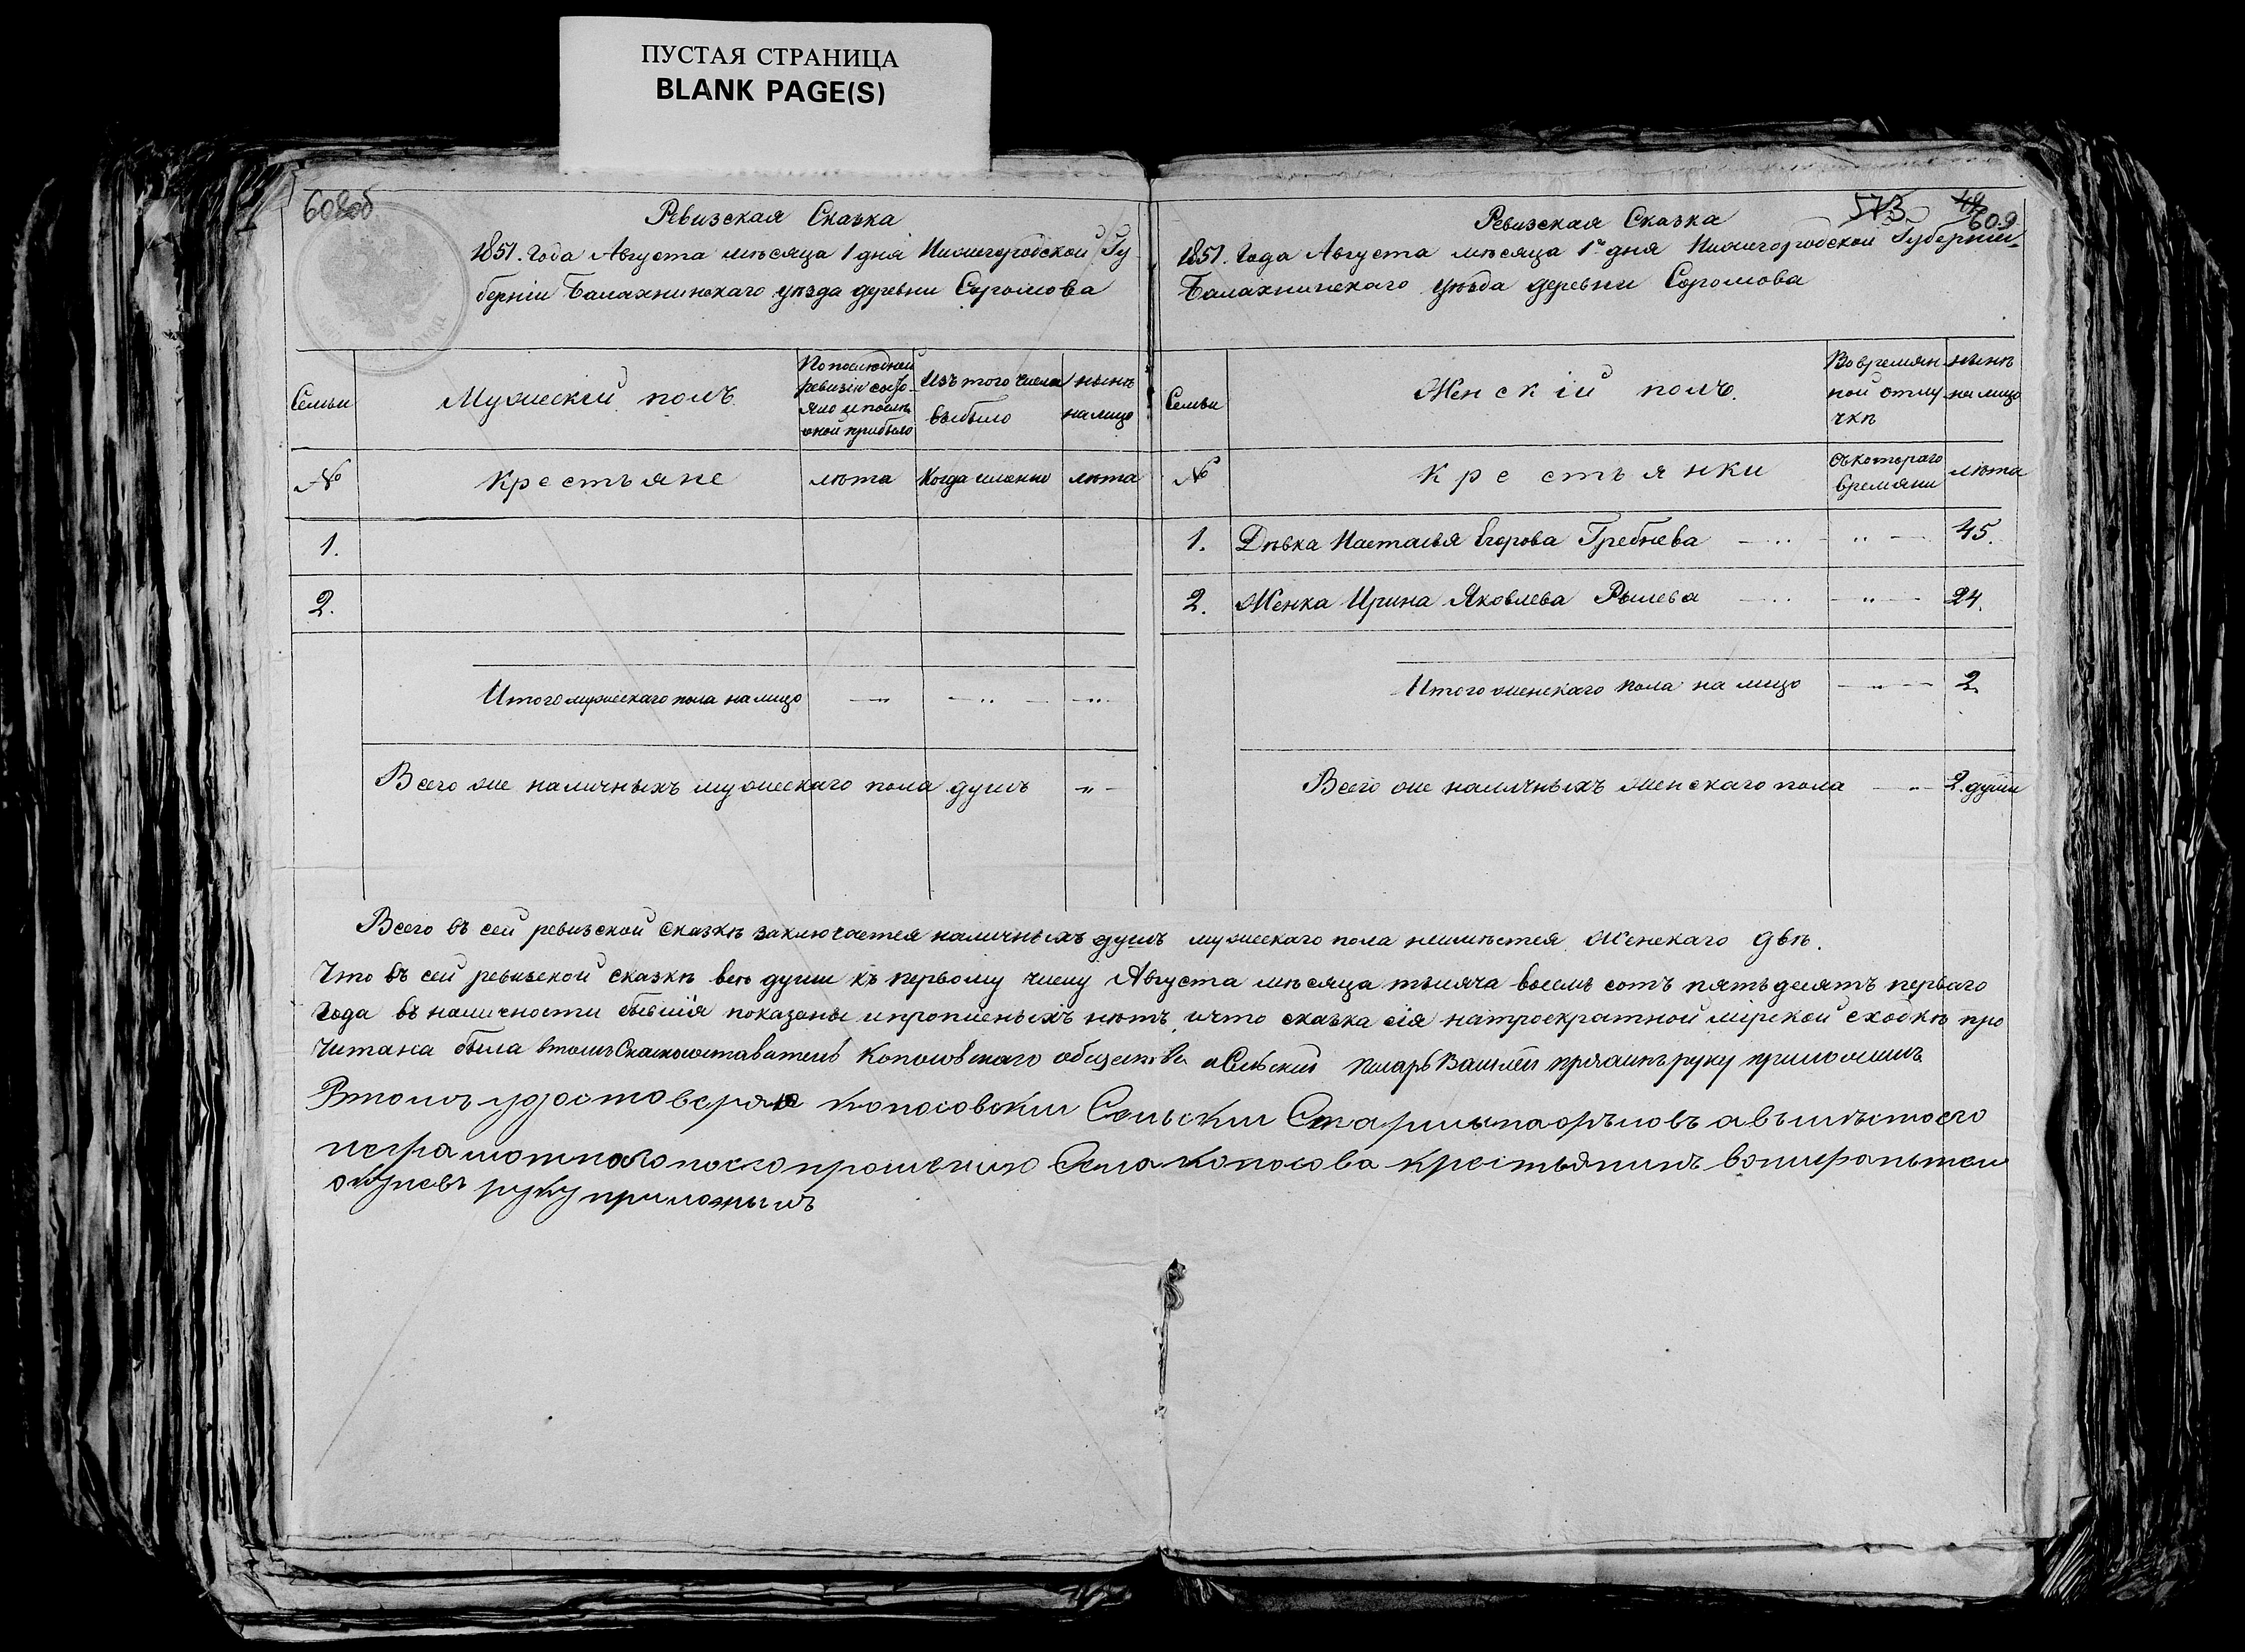 ПУСТАЯ СТРАНИЦА
BLANK PAGE(S)
608об
Ревизская Сказка
1851. Года Августа мѣсяца 1 дня Нижегородской Гу
берніи Балахнинскаго уѣзда деревни Сормова
Семьи
Мужескій полъ
По последней ревизіи состо-
яло и послѣ оной прибыло
Изъ того числа выбыло
нынѣ на лицо
№
Крестьяне
лѣта
Когда именно
лѣта
1.
2.
Итого мужескаго пола на лицо
Всего же наличныхъ мужескаго пола душъ
573
49
609
Ревизская Сказка
1851. Года Августа мѣсяца 1го дня Нижегородской Губерніи
Балахнинскаго уѣзда деревни Сормова
Семьи
Женскій полъ.
Во времян
ной отлу
чкѣ
нынѣ
на лицо
№
Крестьянки
Съ котораго
времяни
лѣта
1. Дѣвка Настасья Егорова Гребнева 45.
2. Женка Ирина Яковлева Рылева 24.
Итого женскаго пола на лицо 2.
Всего же наличныхъ женскаго пола 2. души
Всего въ сей ревизской сказкѣ заключается наличныхъ душъ мужескаго пола неимѣется, Женскаго двѣ.
Что въ сей ревизской сказкѣ всѣ души къ первому числу Августа мѣсяца тысяча восемь сотъ пятьдесятъ перваго
Года въ наличности бывшія показаны и прописныхъ нѣтъ, и что сказка сія на троекратной мірской сходкѣ про
читана была втомъ Сказкосоставатель Копосовскаго общества Сельский Писарь Василей руку приложилъ
Втомъ удостоверяю Копосовски Сельски Старшина орѣловъ авъместоего
неграмотнаго поего прошению Села Копосова крестьянинъ
окуневъ руку приложылъ